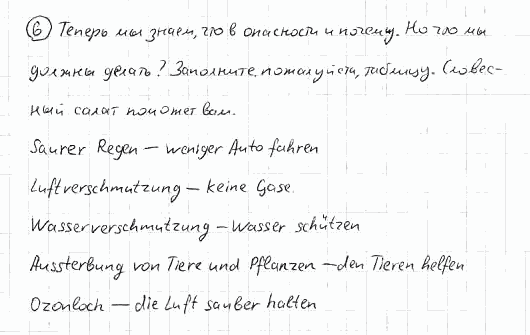 ⑥ Теперь мы знаем, что в опасности и почему. Но что мы
должны делать? Заполните, пожалуйста, таблицу. Словес-
ный салат поможет вам.
Saurer Regen – weniger Auto fahren
Luftverschmutzung – keine Gase
Wasserverschmutzung – Wasser schützen
Aussterbung von Tiere und Pflanzen – den Tieren helfen
Ozonloch – die Luft sauber halten